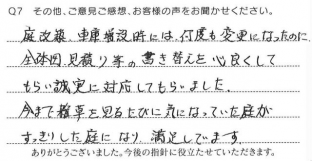 Q7 その他、ご意見ご感想、お客様の声をお聞かせください。
庭改築、車庫増設時には、何度も変更になったのに
全体図、見積り等の書き替えを心良くして
もらい誠実に対応してもらいました。
今まで雑草を見るたびに気になっていた庭が
すっきりした庭になり、満足しています。
ありがとうございました。今後の指針に役立たせていただきます。